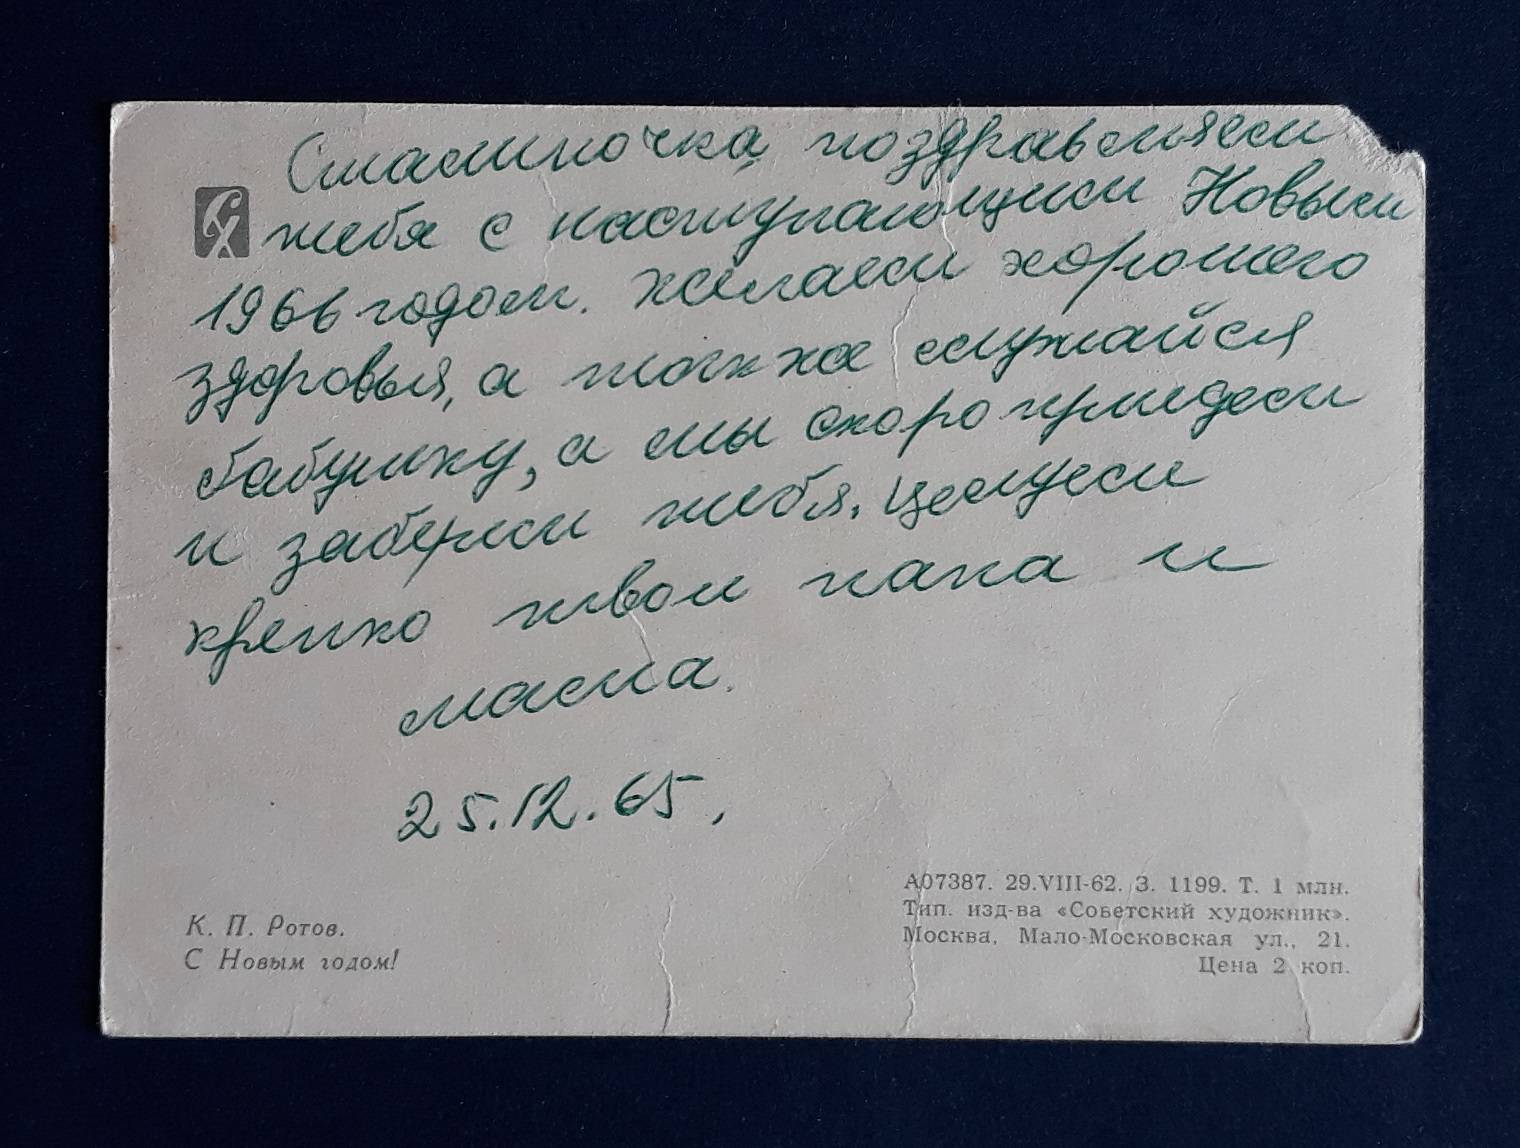 Сталиночка поздравляем
тебя с наступающим Новым
1966 годом. Желаем хорошего
здоровья, а также слушайся
бабушку, а мы скоро приедем
и заберем тебя. Целуем
крепко твои папа и
мама.
25.12.65,
К. П. Ротов.
С Новым годом!
А07387. 29.VIII-62. З. 1199. Т. 1 млн.
Тип. изд-ва «Советский художник».
Москва, Мало-Московская ул., 21.
Цена 2 коп.